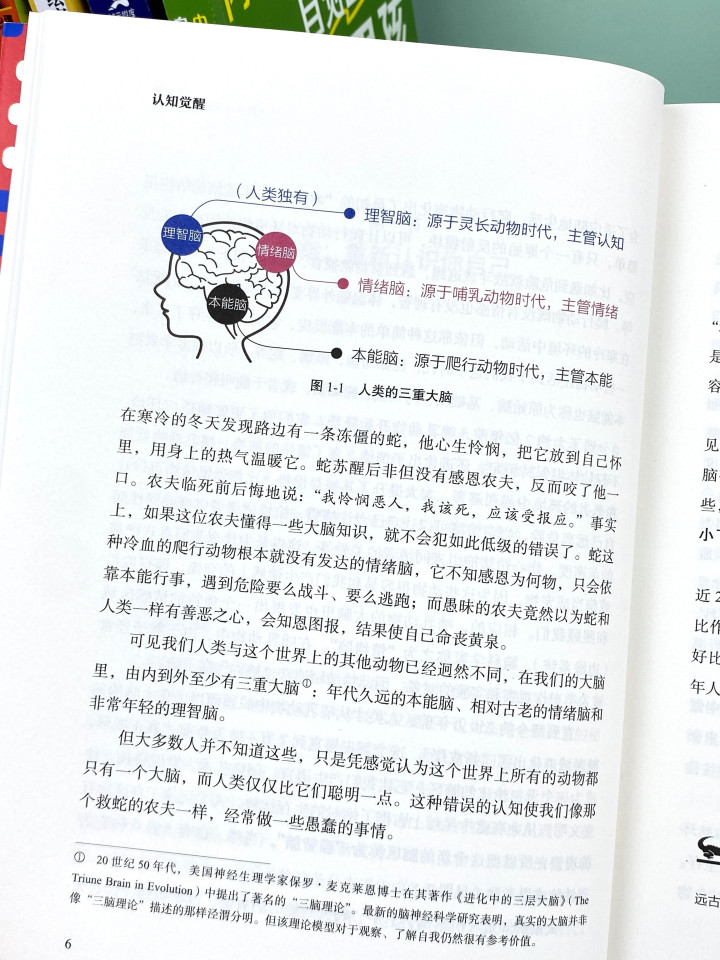 认知觉醒
（人类独有）
理智脑
理智脑：源于灵长动物时代，主管认知
情绪脑
情绪脑：源于哺乳动物时代，主管情绪
本能脑
本能脑：源于爬行动物时代，主管本能
图 1-1 人类的三重大脑
在寒冷的冬天发现路边有一条冻僵的蛇，他心生怜悯，把它放到自己怀
里，用身上的热气温暖它。蛇苏醒后非但没有感恩农夫，反而咬了他一
口。农夫临死前后悔地说：“我怜悯恶人，我该死，应该受报应。”事实
上，如果这位农夫懂得一些大脑知识，就不会犯如此低级的错误了。蛇这
种冷血的爬行动物根本就没有发达的情绪脑，它不知感恩为何物，只会依
靠本能行事，遇到危险要么战斗、要么逃跑；而愚昧的农夫竟然以为蛇和
人类一样有善恶之心，会知恩图报，结果使自己命丧黄泉。
可见我们人类与这个世界上的其他动物已经迥然不同，在我们的大脑
里，由内到外至少有三重大脑①：年代久远的本能脑、相对古老的情绪脑和
非常年轻的理智脑。
但大多数人并不知道这些，只是凭感觉认为这个世界上所有的动物都
只有一个大脑，而人类仅仅比它们聪明一点。这种错误的认知使我们像那
个救蛇的农夫一样，经常做一些愚蠢的事情。
① 20 世纪 50 年代，美国神经生理学家保罗·麦克莱恩博士在其著作《进化中的三层大脑》（The
Triune Brain in Evolution）中提出了著名的“三脑理论”。最新的脑神经科学研究表明，真实的大脑并非
像“三脑理论”描述的那样泾渭分明。但该理论模型对于观察、了解自我仍然很有参考价值。
6
是
容
见
脑
些，
小
近 2
比作
好比
年人
远古